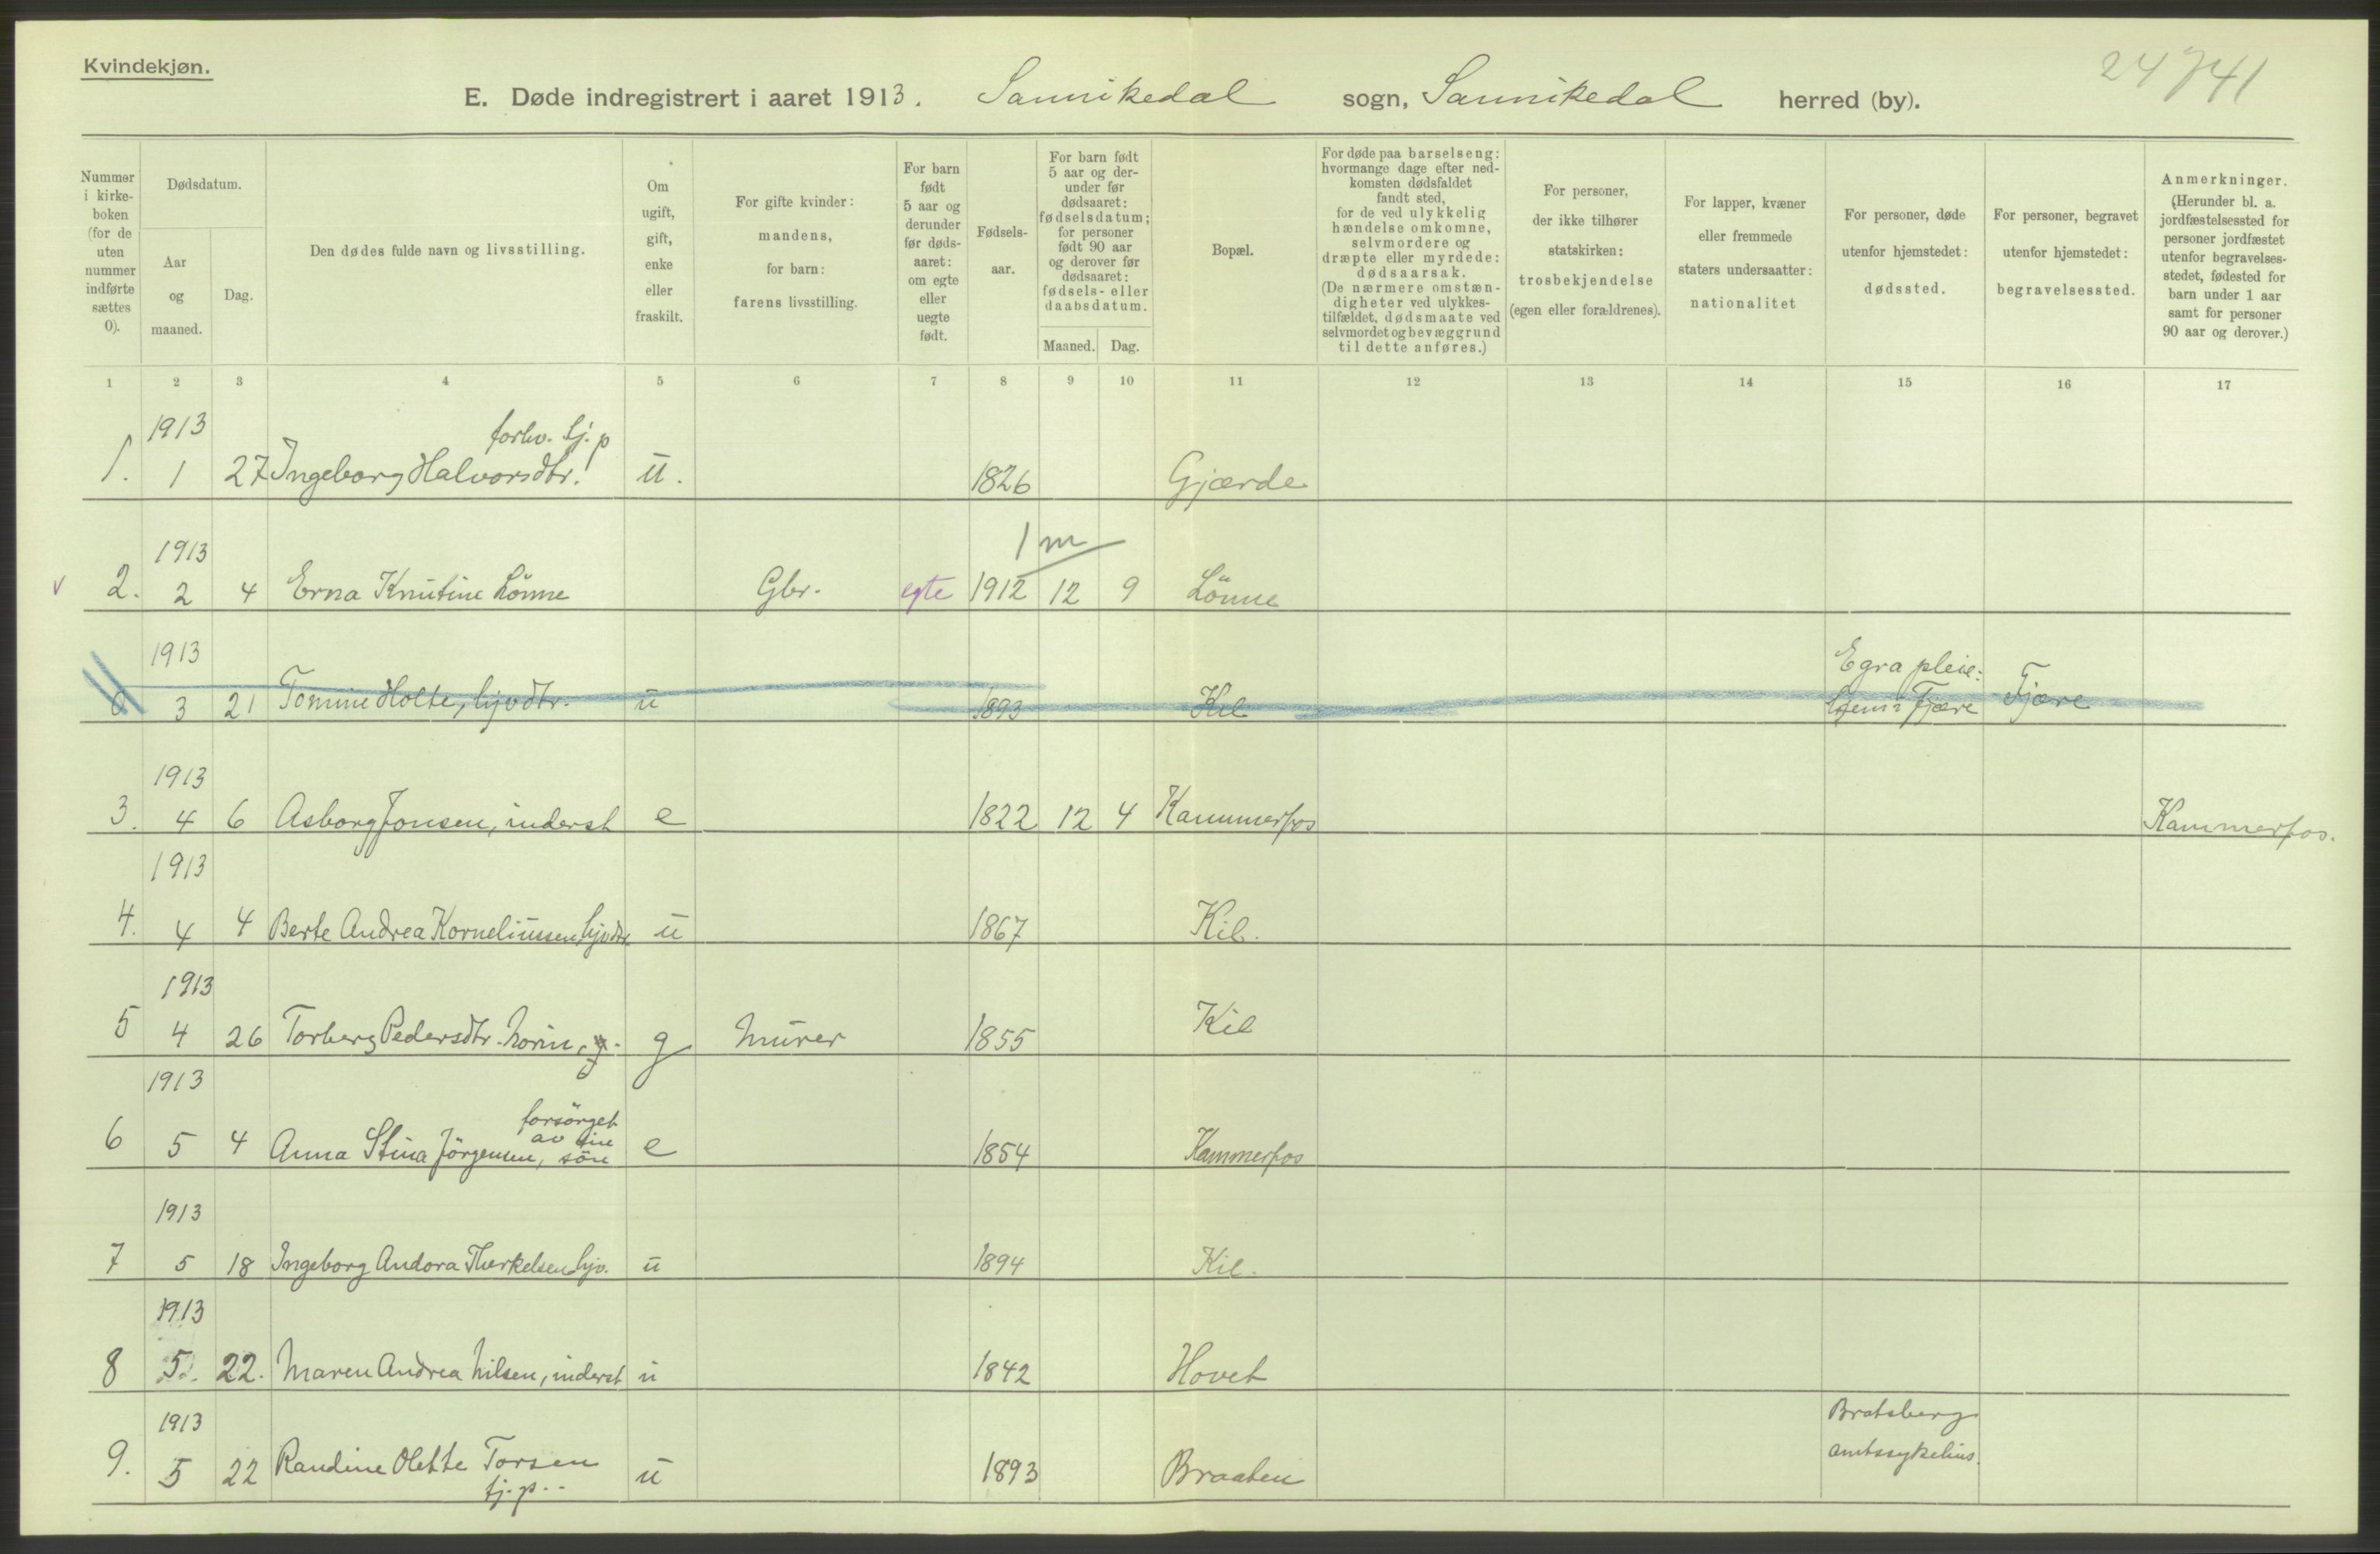 Kvindekjøn.
24741
E. Døde indregistrert i aaret 1913. Sannikedal sogn, Sannikedal herred (by).
Nummer i kirke-boken (for de uten nummer indførte sættes 0).
Dødsdatum.
Aar og maaned.
Dag.
Den dødes fulde navn og livsstilling.
Om ugift, gift, enke eller fraskilt.
For gifte kvinder: mandens, for barn: farens livsstilling.
For barn født 5 aar og derunder før døds-aaret: om egte eller uegte født.
Fødsels-aar.
For barn født 5 aar og der-under før dødsaaret: fødselsdatum; for personer født 90 aar og derover før dødsaaret: fødsels- eller daabsdatum.
Maaned.
Dag.
Bopæl.
For døde paa barselseng: hvormange dage efter ned-komsten dødsfaldet fandt sted, for de ved ulykkelig hændelse omkomne, selvmordere og dræpte eller myrdede: dødsaarsak. (De nærmere omstæn-digheter ved ulykkes-tilfældet, dødsmaate ved selvmordet og bevæggrund til dette anføres.)
For personer, der ikke tilhører statskirken: trosbekjendelse (egen eller forældrenes).
For lapper, kvæner eller fremmede staters undersaatter: nationalitet
For personer, døde utenfor hjemstedet: dødssted.
For personer, begravet utenfor hjemstedet: begravelsessted.
Anmerkninger. (Herunder bl. a. jordfæstelsessted for personer jordfæstet utenfor begravelses-stedet, fødested for barn under 1 aar samt for personer 90 aar og derover.)
1 2 3 4 5 6 7 8 9 10 11 12 13 14 15 16 17
1913 forhv. tj. p
1. 1 27 Ingeborg Halvorsdtr. u. 1826 Gjærde
1913 1 m
v 2. 2 4 Erna Knutine Lönne Gbr. egte 1912 12 9 Lönne
1913 Egra pleie:
0 3 21 Tomine Holte, hjvdtr. u 1893 Kil hjem i Fjære Fjære
1913
3. 4 6 Asborg Jonsen, inderst e 1822 12 4 Kammerfos Kammerfos.
1913
4. 4 4 Berte Andrea Korneliussen hjvdtr u 1867 Kil.
1913
5 4 26 Torberg Pedersdtr. g Murer 1855 Kil
1913 forsörget
av sine
6 5 4 Anna Stina Jörgensen, sön e 1854 Kammerfos
1913
7 5 18 Ingeborg Andora Therkelsen hjv. u 1894 Kil.
1913
8 5. 22. Maren Andrea Nilsen, inderst u 1842 Hovet
1913 Bratsberg
9. 5 22 Randine Olette Torsen u 1893 Braaten amtssykehus.
tj. p.